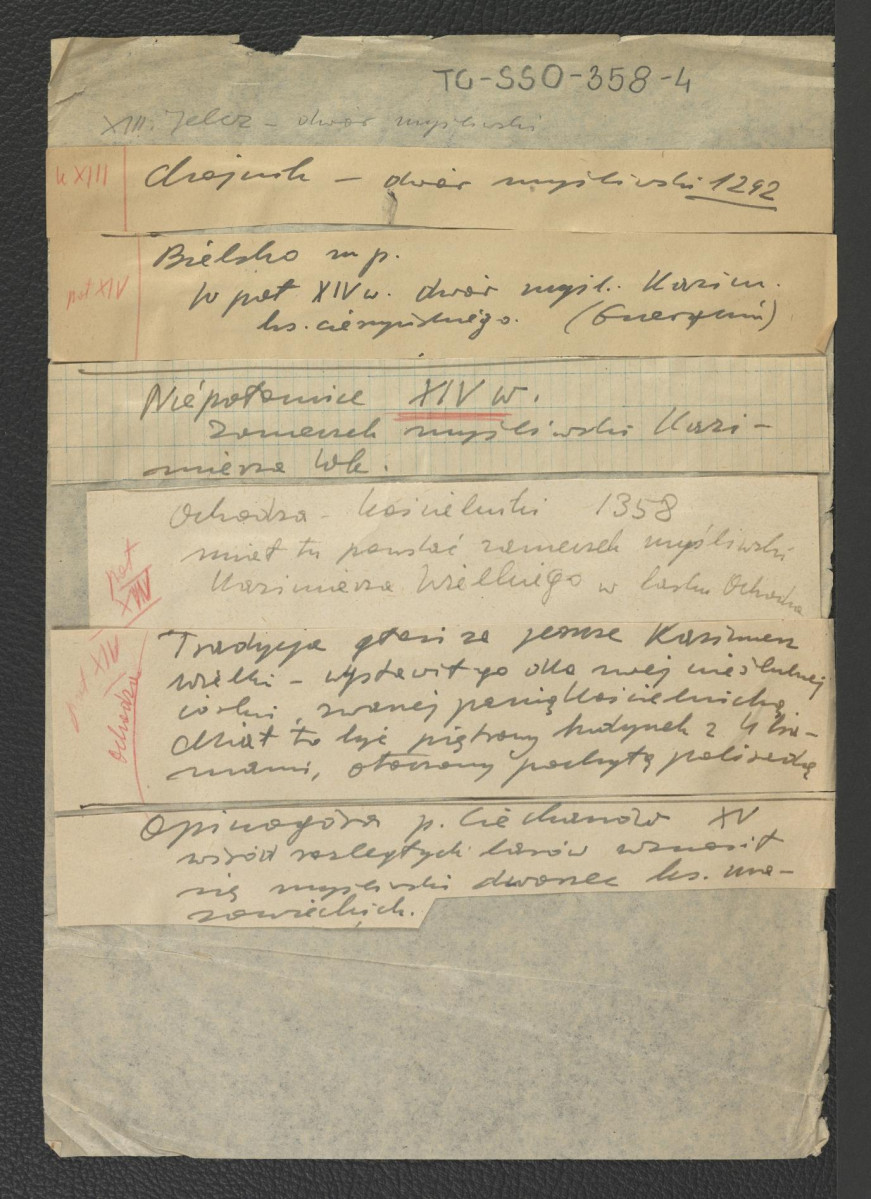 TG-SSO-358-4
XIII. Jelcz – dwór myśliwski
k XIII
Chojnik – dwór myśliwski 1292
poł XIV
Bielsko m p.
W poł XIV w. dwór myśl. Kazim.
ks. cieszyńskiego.
Niepołomice XIV w.
zameczek myśliwski Kazi-
mierza Wk.
Ochodza – Kościelniki 1358
miał tu powstać zameczek myśliwski
Kazimierza Wielkiego w lasku Ochodza
poł XIV
Tradycja głosi że jeszcze Kazimierz
Wielki – wystawił go dla swej nieślubnej
córki, zwanej panią Kościelnicką
Miał to być piętrowy budynek z 4 ba-
mami, otoczony pochyłą palisadą
poł XIV
Ochodza
Opinogóra p. Ciechanów XV
wśród rozległych lasów wznosił
się myśliwski dworzec ks. ma-
zowieckich.